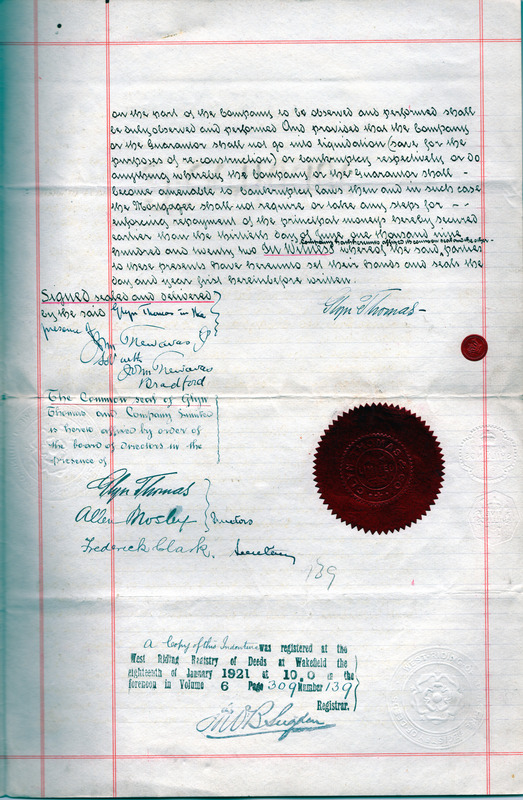 on the part of the Company to be observed and performed shall
be duly observed and performed And provided that the Company
or the Guarantor shall not go into liquidation (save for the
purposes of re-construction) or bankruptcy respectively or do
anything whereby the Company or the Guarantor shall -
become amenable to bankruptcy laws then and in such case
the Mortgagee shall not require or take any steps for - -
enforcing repayment of the principal moneys hereby secured
earlier than the thirtieth day of June one thousand nine
Company hath hereunto affixed its common seal and the other
hundred and twenty two In Witness whereof the said parties
to these presents have hereunto set their hands and seals the
day and year first hereinbefore written.
Signed sealed and delivered
by the said Glyn Thomas in the
presence of
Glyn Thomas -
John Trewavas
John Trewavas
Bradford
The Common seal of Glyn
Thomas and Company Limited
is hereto affixed by order of
the board of Directors in the
presence of
Glyn Thomas
Allen Mosley Directors
Frederick Clark, Secretary
139
A Copy of this Indenture was registered at the
West Riding Registry of Deeds at Wakefield the
eighteenth of January 1921 at 10.0 in the
forenoon in Volume 6 Page 309 Number 139
Registrar.